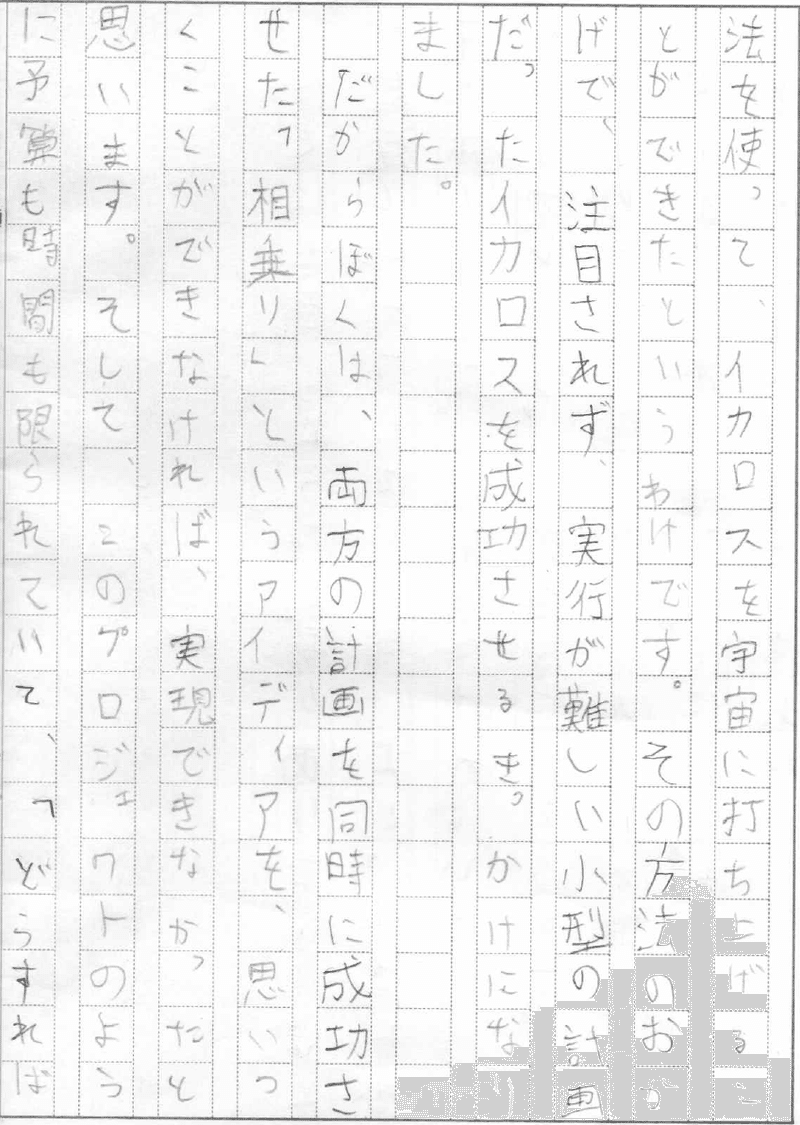 法を使って、イカロスを宇宙に打ち上げるこ
とができたというわけです。その方法のおか
げで、注目されず、実行が難しい小型の計画
だったイカロスを成功させるきっかけになり
ました。
だからぼくは、両方の計画を同時に成功さ
せた「相乗り」というアイディアを、思いつ
くことができなければ、実現できなかったと
思います。そして、このプロジェクトのよう
に予算も時間も限られていて、「どうすれば